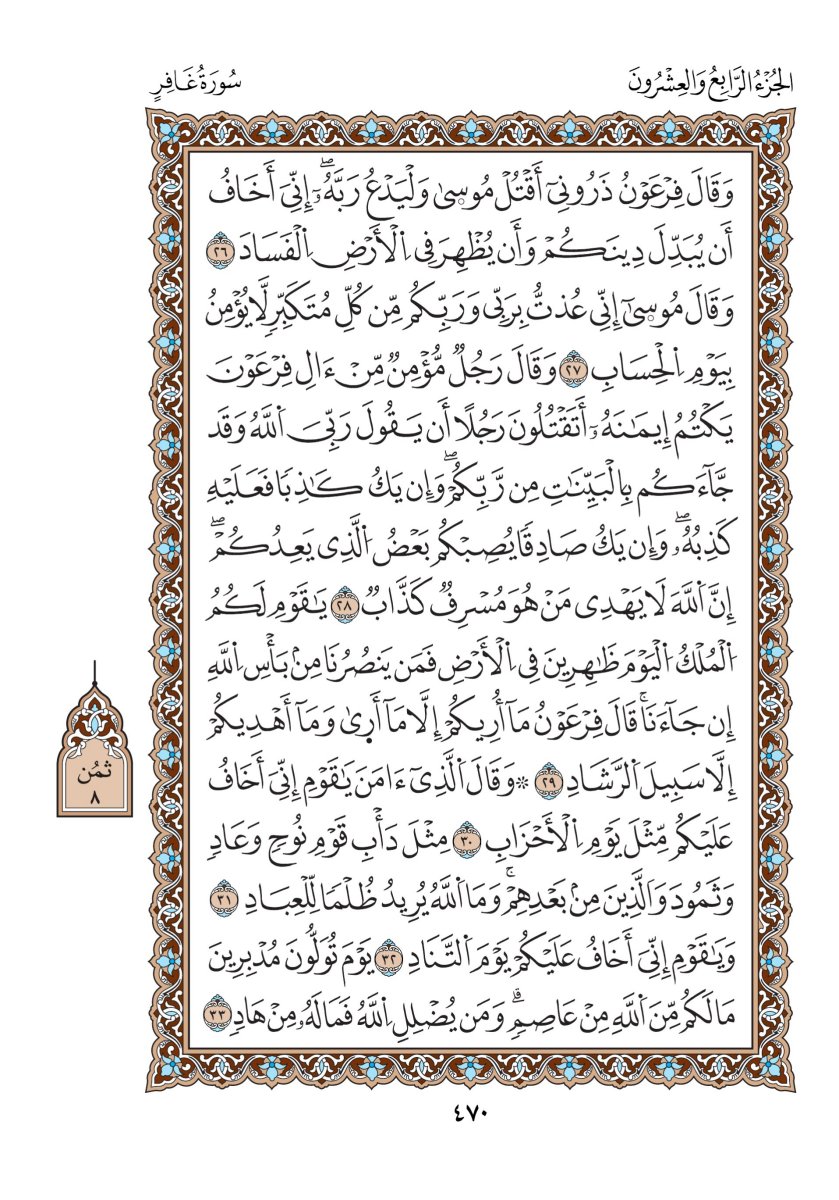 الجُزْءُ الرَّابِعُ وَالعِشْرُونَ
سُورَةُ غَافِرٍ
وَقَالَ فِرْعَوْنُ ذَرُونِيٓ أَقْتُلْ مُوسىٰ وَلْيَدْعُ رَبَّهُۥٓۖ إِنِّيَ أَخَافُ
أَن يُبَدِّلَ دِينَكُمْ وَأَن يُظْهِرَ فِي اِلْأَرْضِ اِلْفَسَادَ ٢٦
وَقَالَ مُوسىٰٓ إِنِّي عُذتُّ بِرَبِّي وَرَبِّكُم مِّن كُلِّ مُتَكَبِّرٍ لَّا يُؤْمِنُ
بِيَوْمِ اِلْحِسَابِ ٢٧ وَقَالَ رَجُلٌ مُّؤْمِنٌ مِّنْ ءَالِ فِرْعَوْنَ
يَكْتُمُ إِيمَٰنَهُۥٓ أَتَقْتُلُونَ رَجُلًا أَن يَقُولَ رَبِّيَ اَللَّهُ وَقَد
جَّآءَكُم بِالْبَيِّنَٰتِ مِن رَّبِّكُمْۖ وَإِن يَكُ كَٰذِبًا فَعَلَيْهِ
كَذِبُهُۥۖ وَإِن يَكُ صَادِقًا يُصِبْكُم بَعْضُ اُلَّذِي يَعِدُكُمْۖ
إِنَّ اَللَّهَ لَا يَهْدِي مَنْ هُوَ مُسْرِفٌ كَذَّابٌ ٢٨ يَٰقَوْمِ لَكُمُ
اُلْمُلْكُ اُلْيَوْمَ ظَٰهِرِينَ فِي اِلْأَرْضِ فَمَن يَنصُرُنَا مِنۢ بَأْسِ اِللَّهِ
إِن جَآءَنَاۚ قَالَ فِرْعَوْنُ مَآ أُرِيكُمْ إِلَّا مَآ أَرىٰ وَمَآ أَهْدِيكُمْ
إِلَّا سَبِيلَ اَلرَّشَادِ ٢٩ ۞ وَقَالَ اَلَّذِيٓ ءَامَنَ يَٰقَوْمِ إِنِّيَ أَخَافُ
عَلَيْكُم مِّثْلَ يَوْمِ اِلْأَحْزَابِ ٣٠ مِثْلَ دَأْبِ قَوْمِ نُوحٍ وَعَادٍ
وَثَمُودَ وَالَّذِينَ مِنۢ بَعْدِهِمْۚ وَمَا اَللَّهُ يُرِيدُ ظُلْمًا لِّلْعِبَادِ ٣١
وَيَٰقَوْمِ إِنِّيَ أَخَافُ عَلَيْكُمْ يَوْمَ اَلتَّنَادِ ٣٢ يَوْمَ تُوَلُّونَ مُدْبِرِينَ
مَا لَكُم مِّنَ اَللَّهِ مِنْ عَاصِمٍۗ وَمَن يُضْلِلِ اِللَّهُ فَمَا لَهُۥ مِنْ هَادٍ ٣٣
ثمُن
٨
٤٧٠